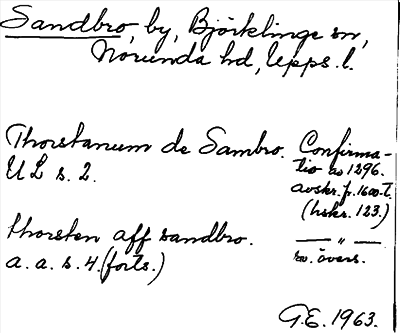 Sandbro, by, Björklinge sn,
Norunda hd, Upps. l.
Thorstanum de Sambro. Confirma-
tio av 1296.
UL s. 2. avskr. fr. 1600-t.
(hskr. 123.)
thorsten aff sandbro. — " —
a. a. s. 4. (forts.) sv. övers.
G.E. 1963.